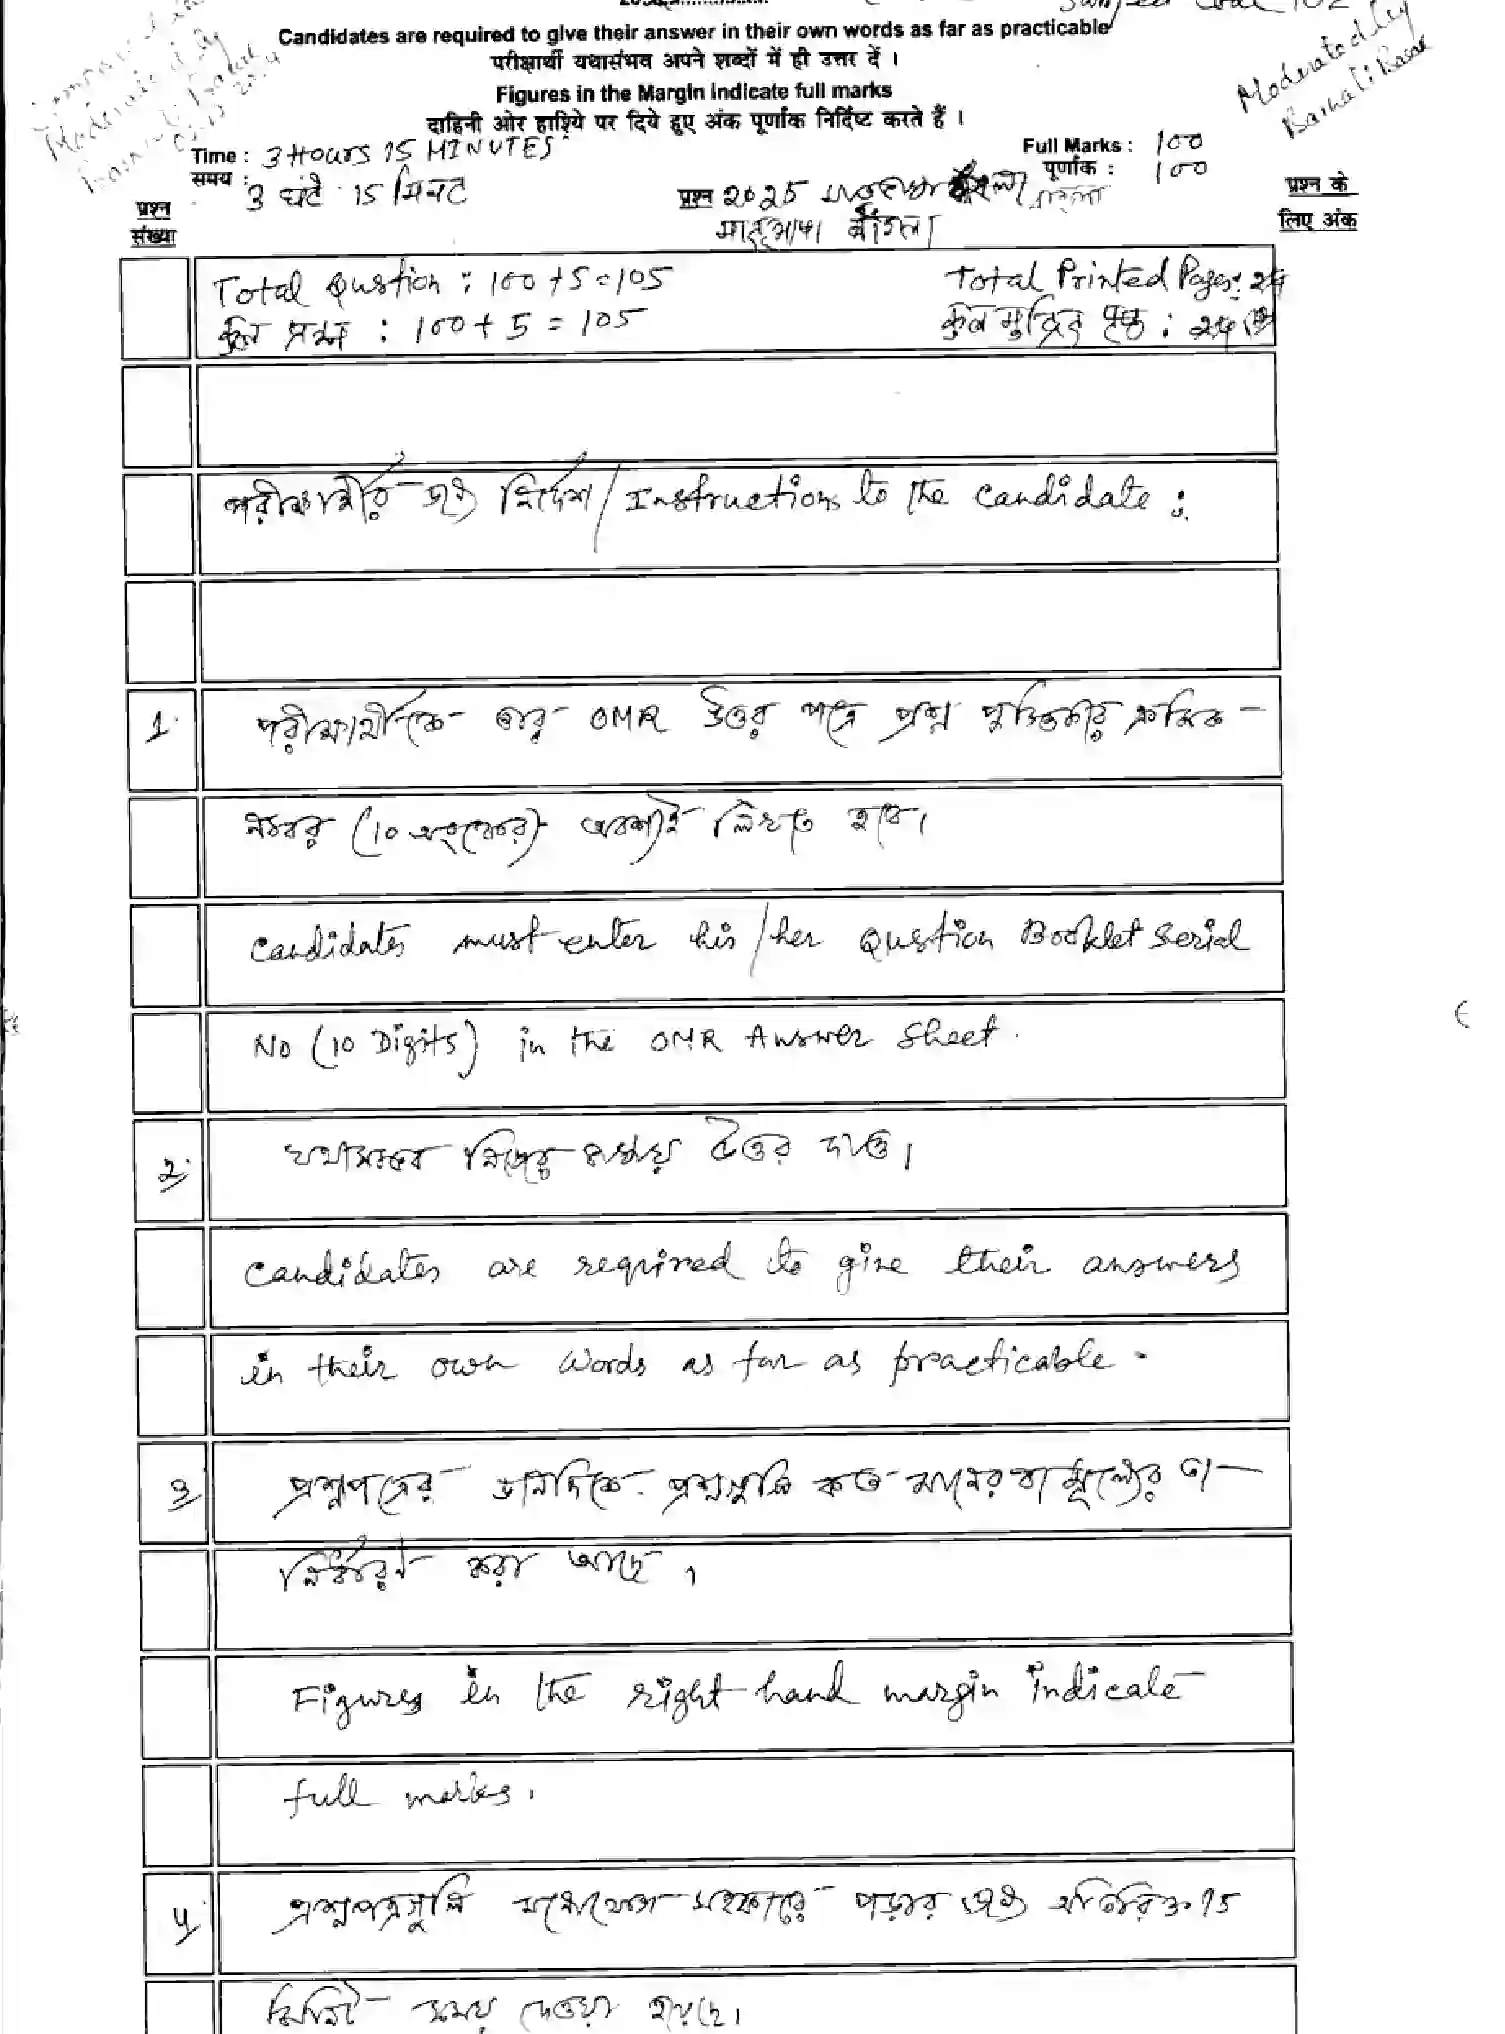 Candidates are required to give their answer in their own words as far as practicable
परीक्षार्थी यथासंभव अपने शब्दों में ही उत्तर दें ।
Figures in the Margin indicate full marks
दाहिनी ओर हाशिये पर दिये हुए अंक पूर्णांक निर्दिष्ट करते हैं ।
Moderated by
Barnali Basak
Time : 3 Hours 15 MINUTES
Full Marks : 100
समय : 3 घंटे 15 मिनट
पूर्णांक : 100
प्रश्न 2025
मातृभाषा बांग्ला
प्रश्न संख्या
प्रश्न के लिए अंक
Total Qustion : 100 + 5 = 105
Total Printed Pages : 24
कुल प्रश्न : 100 + 5 = 105
कुल मुद्रित पृष्ठ : 24
পরীক্ষার্থীর জন্য নির্দেশ / Instructions to the candidate :
1. পরীক্ষার্থীকে তার OMR উত্তর পত্রে প্রশ্ন পুস্তিকার ক্রমিক
নম্বর (10 অঙ্কের) অবশ্যই লিখতে হবে।
Candidates must enter his / her Qustion Booklet Serial
No (10 Digits) in the OMR Answer Sheet.
২. যথাসম্ভব নিজের ভাষায় উত্তর দাও।
Candidates are required to give their answers
in their own words as far as practicable.
৩ প্রশ্নপত্রের ডানদিকে প্রশ্নগুলি কত মানের বা মূল্যের তা
নির্ধারণ করা আছে।
Figures in the right hand margin indicate
full marks.
৪. প্রশ্নপত্রগুলি মনোযোগ সহকারে পড়ার জন্য অতিরিক্ত 15
মিনিট সময় দেওয়া হয়েছে।